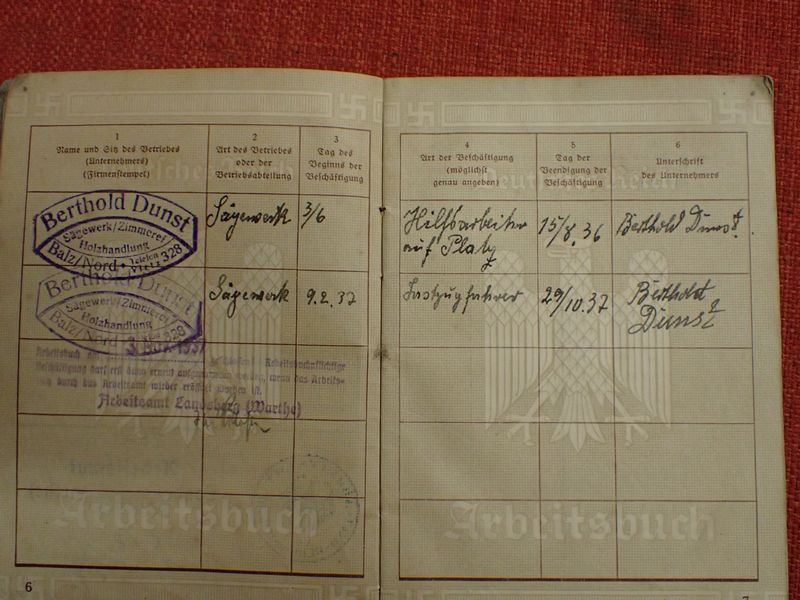 1
Name und Sitz des Betriebes
(Unternehmers)
(Firmenstempel)
2
Art des Betriebes
oder der
Betriebsabteilung
3
Tag des
Beginns der
Beschäftigung
Berthold Dunst
Sägewerk/Zimmerei
Holzhandlung
Balz/Nord • Telefon
Vietz 328
Sägewerk
3/6
Berthold Dunst
Sägewerk/Zimmerei
Holzhandlung
Balz/Nord
328
Sägewerk
9.2.37
Arbeitsbuch geschlossen. Arbeitsbuchpflichtige
Beschäftigung darf erst dann erneut aufgenommen werden, wenn das Arbeits-
buch durch das Arbeitsamt wieder eröffnet worden ist.
Arbeitsamt Landsberg (Warthe)
Arbeitsbuch
6
4
Art der Beschäftigung
(möglichst
genau angeben)
5
Tag der
Beendigung der
Beschäftigung
6
Unterschrift
des Unternehmers
Deutsches Reich
Hilfsarbeiter
auf Platz
15/8.36
Berthold Dunst
Lastzugfahrer
29/10.37
Berthold
Dunst
Arbeitsbuch
7